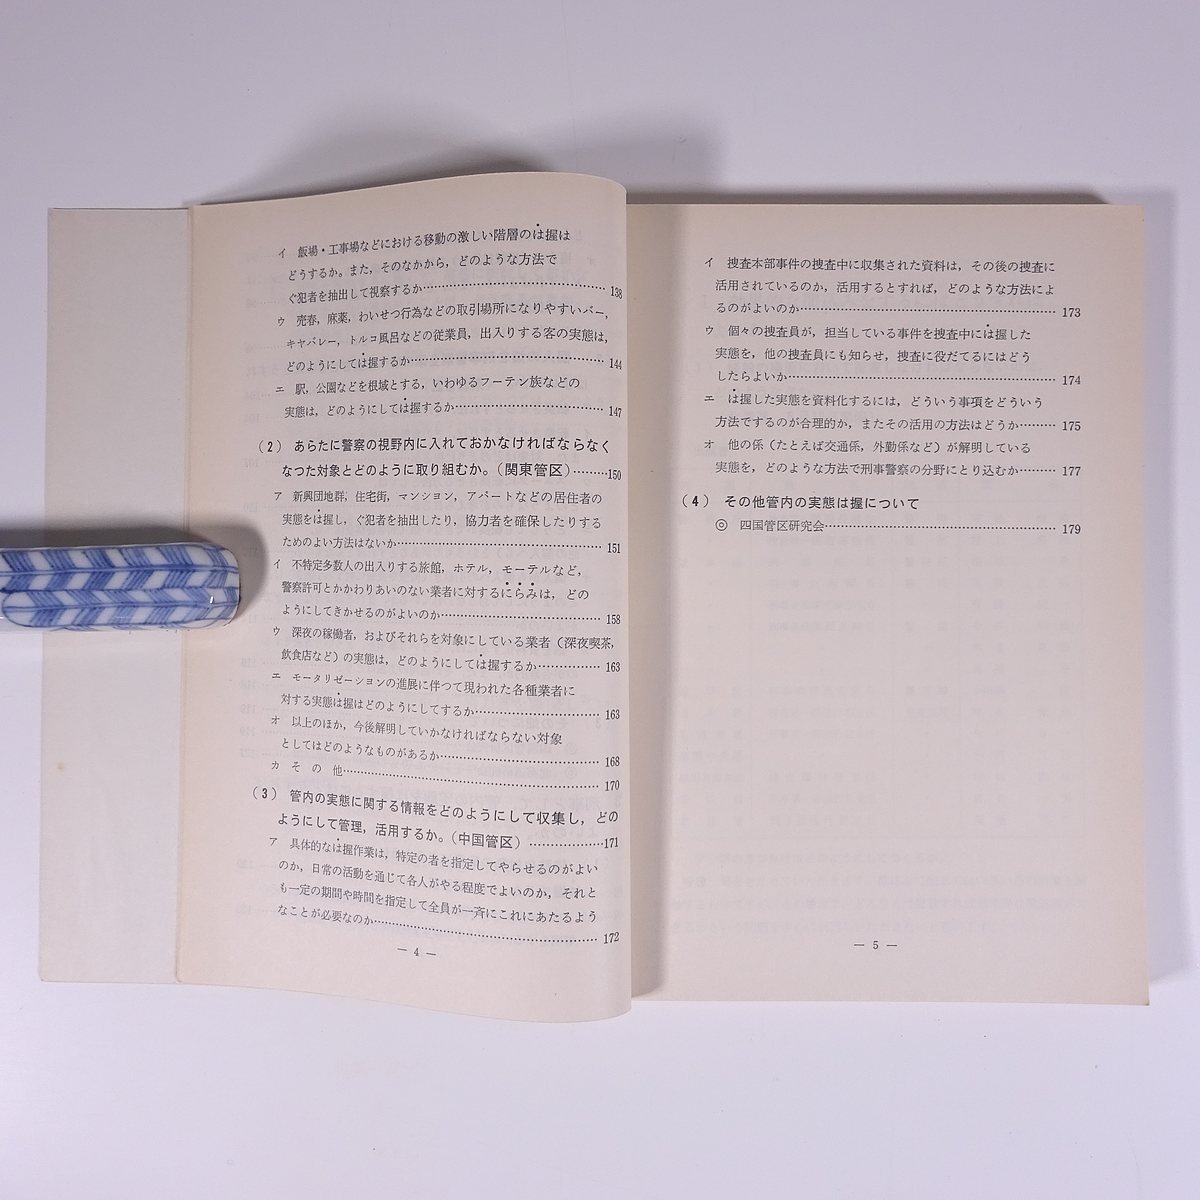 イ　飯場・工事場などにおける移動の激しい階層のは握は
どうするか。また，そのなかから，どのような方法で
ぐ犯者を抽出して視察するか……………………………………138
ウ　売春，麻薬，わいせつ行為などの取引場所になりやすいバー，
キャバレー，トルコ風呂などの従業員，出入りする客の実態は，
どのようにしては握するか………………………………………144
エ　駅，公園などを根域とする，いわゆるフーテン族などの
実態は，どのようにしては握するか……………………………147
（2）　あらたに警察の視野内に入れておかなければならなく
なつた対象とどのように取り組むか。（関東管区）………150
ア　新興団地群，住宅街，マンション，アパートなどの居住者の
実態をは握し，ぐ犯者を抽出したり，協力者を確保したりする
ためのよい方法はないか…………………………………………151
イ　不特定多数人の出入りする旅館，ホテル，モーテルなど，
警察許可とかかわりあいのない業者に対するにらみは，どの
ようにしてきかせるのがよいのか………………………………158
ウ　深夜の稼働者，およびそれらを対象にしている業者（深夜喫茶，
飲食店など）の実態は，どのようにしては握するか…………163
エ　モータリゼーションの進展に伴つて現われた各種業者に
対する実態は握はどのようにしてするか………………………163
オ　以上のほか，今後解明していかなければならない対象
としてはどのようなものがあるか………………………………168
カ　その他……………………………………………………………170
（3）　管内の実態に関する情報をどのようにして収集し，どの
ようにして管理，活用するか。（中国管区）………………171
ア　具体的なは握作業は，特定の者を指定してやらせるのがよい
のか，日常の活動を通じて各人がやる程度でよいのか，それと
も一定の期間や時間を指定して全員が一斉にこれにあたるよう
なことが必要なのか………………………………………………172
— 4 —
イ　捜査本部事件の捜査中に収集された資料は，その後の捜査に
活用されているのか，活用するとすれば，どのような方法によ
るのがよいのか……………………………………………………173
ウ　個々の捜査員が，担当している事件を捜査中には握した
実態を，他の捜査員にも知らせ，捜査に役だてるにはどう
したらよいか………………………………………………………174
エ　は握した実態を資料化するには，どういう事項をどういう
方法でするのが合理的か，またその活用の方法はどうか……175
オ　他の係（たとえば交通係，外勤係など）が解明している
実態を，どのような方法で刑事警察の分野にとり込むか……177
（4）　その他管内の実態は握について
◎　四国管区研究会…………………………………………………179
— 5 —